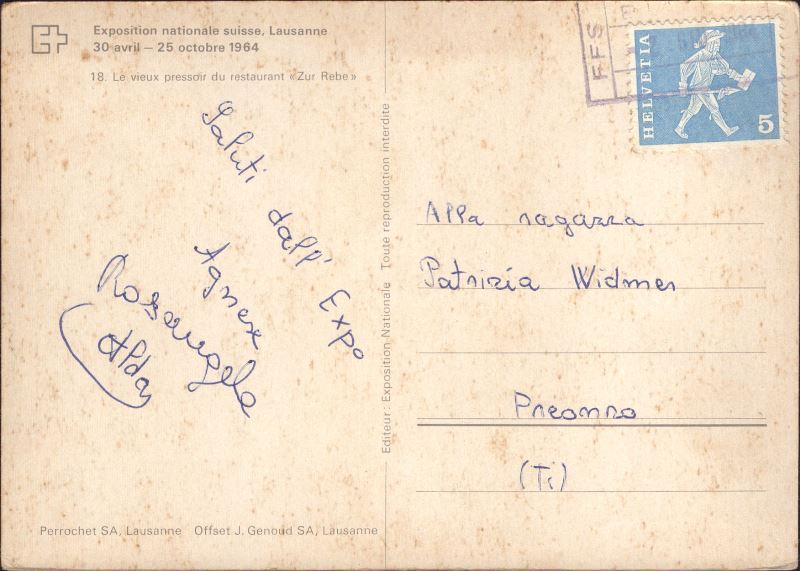 Exposition nationale suisse, Lausanne
30 avril – 25 octobre 1964
18. Le vieux pressoir du restaurant «Zur Rebe»
Saluti dall' Expo
Agnese
Rosangela
Alda
Editeur: Exposition Nationale Toute reproduction interdite
FFS
HELVETIA
5
Alla ragazza
Patrizia Widmer
Preonzo
(Ti)
Perrochet SA, Lausanne Offset J. Genoud SA, Lausanne